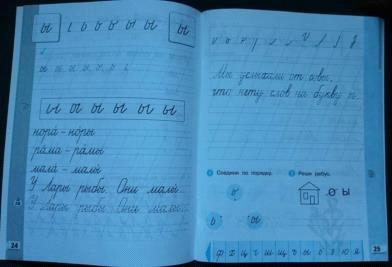 ы ы
ы ы ы ы ы ы
нора - норы
рама - рамы
мала - малы
У Лары рыбы. Они малы.
У Лары рыбы. Они малы.
24
Мы услыхали от совы,
что нету слов на букву ы.
1 Соедини по порядку. 2 Реши ребус.
о ы
ы
ф х ц ч ш щ ъ ы ь э ю я
25